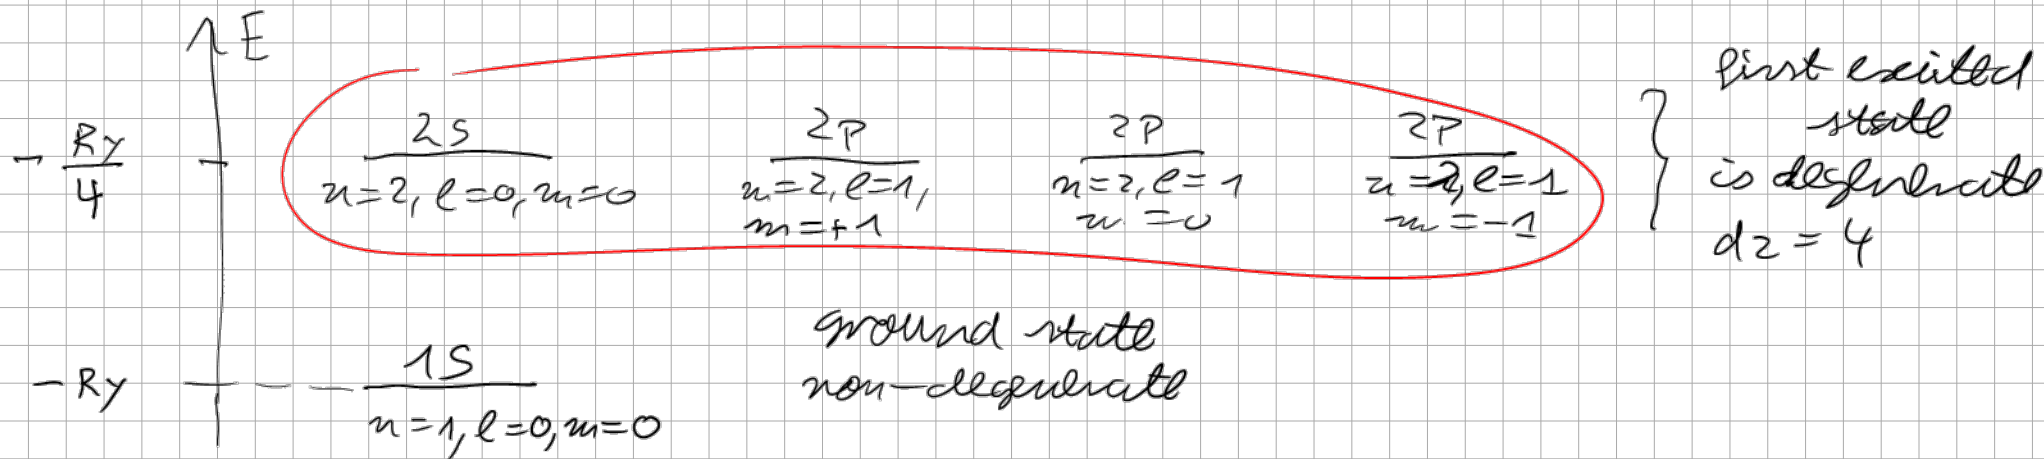 E
- Ry/4
2S
n=2, l=0, m=0
2P
n=2, l=1,
m=+1
2P
n=2, l=1
m=0
2P
n=2, l=1
m=-1
} first excited
state
is degenerate
d2 = 4
- Ry
1S
n=1, l=0, m=0
ground state
non-degenerate